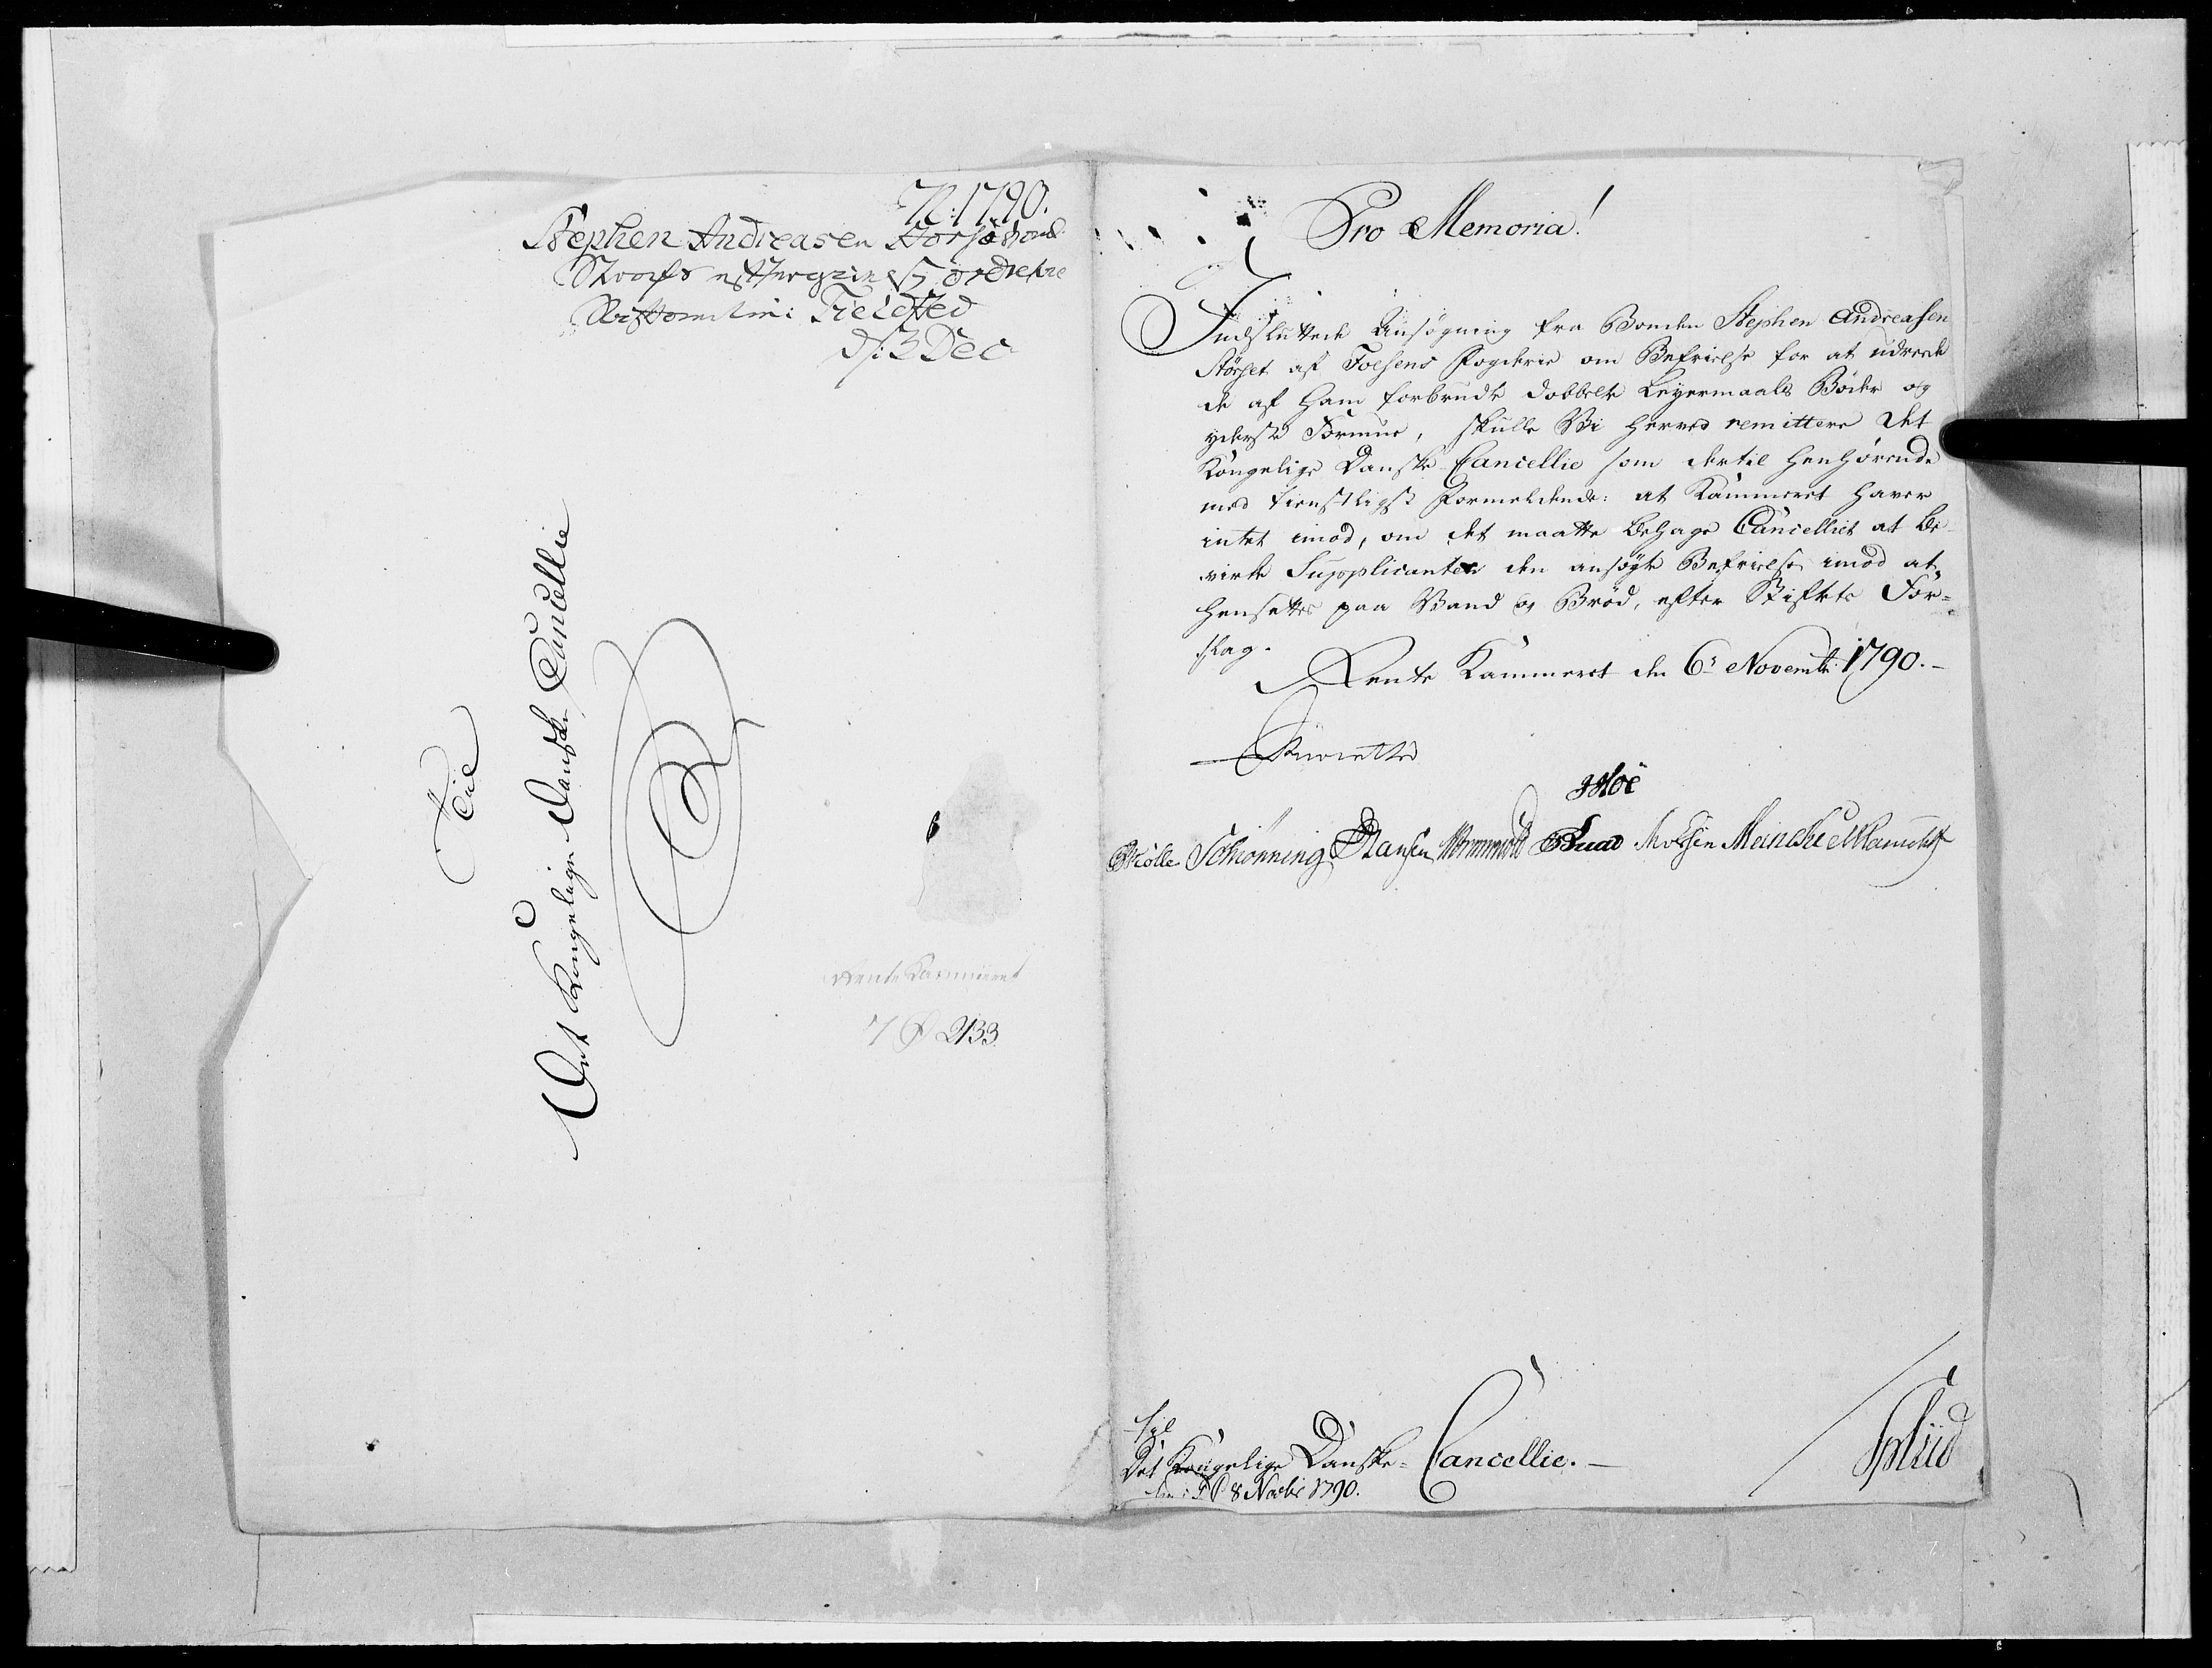 1790.
Stephen Andreasen
Fieldsted
3 Dec
Til
Det Kongelige Danske Cancellie
Rente Kammeret
2133
Pro Memoria!
Indsluttede Ansøgning fra Bonden Stephen Andreasen
Störset af Foesens Fogderie om Befrielse for at udrede
de af ham forbrudte dobbelte Leyermaals Böder og
yderste Formue, skulle Vi herved remittere Det
Kongelige Danske Cancellie som dertil henhørende
med tienstligst Formeldende: at Kammeret haver
intet imod, om det maatte behage Cancelliet at be
virke Supplicanten den ansøgte Befrielse imod at
hensættes paa Vand og Brød, efter Stiftets For=
slag.
Rente Kammeret den 6r Novembr: 1790.-
Schiönning Hansen Meinche
Til
Det Kongelige Danske Cancellie.-
8 Novbr 1790.